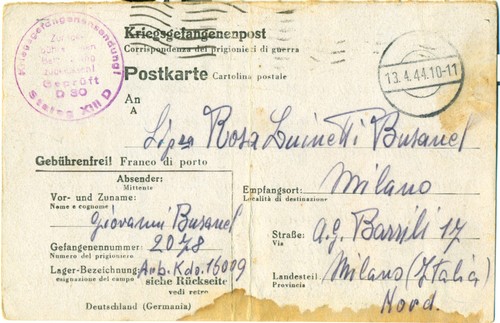 Kriegsgefangenensendung!
Geprüft
D 30
Stalag XIII D
Kriegsgefangenenpost
Corrispondenza dei prigionieri di guerra
Postkarte Cartolina postale
13.4.44.10-11
An
A
Rosa Luinetti Busanel
Gebührenfrei! Franco di porto
Absender:
Mittente
Vor- und Zuname:
Nome e cognome
Giovanni Busanel
Gefangenennummer:
Numero del prigioniero
2078
Lager-Bezeichnung:
esignazione del campo
Arb. Kdo. 16009
siehe Rückseite
vedi retro
Deutschland (Germania)
Empfangsort:
Località di destinazione
Milano
Straße:
Via
A.G. Barrili 17
Landesteil:
Provincia
Milano (Italia)
Nord.